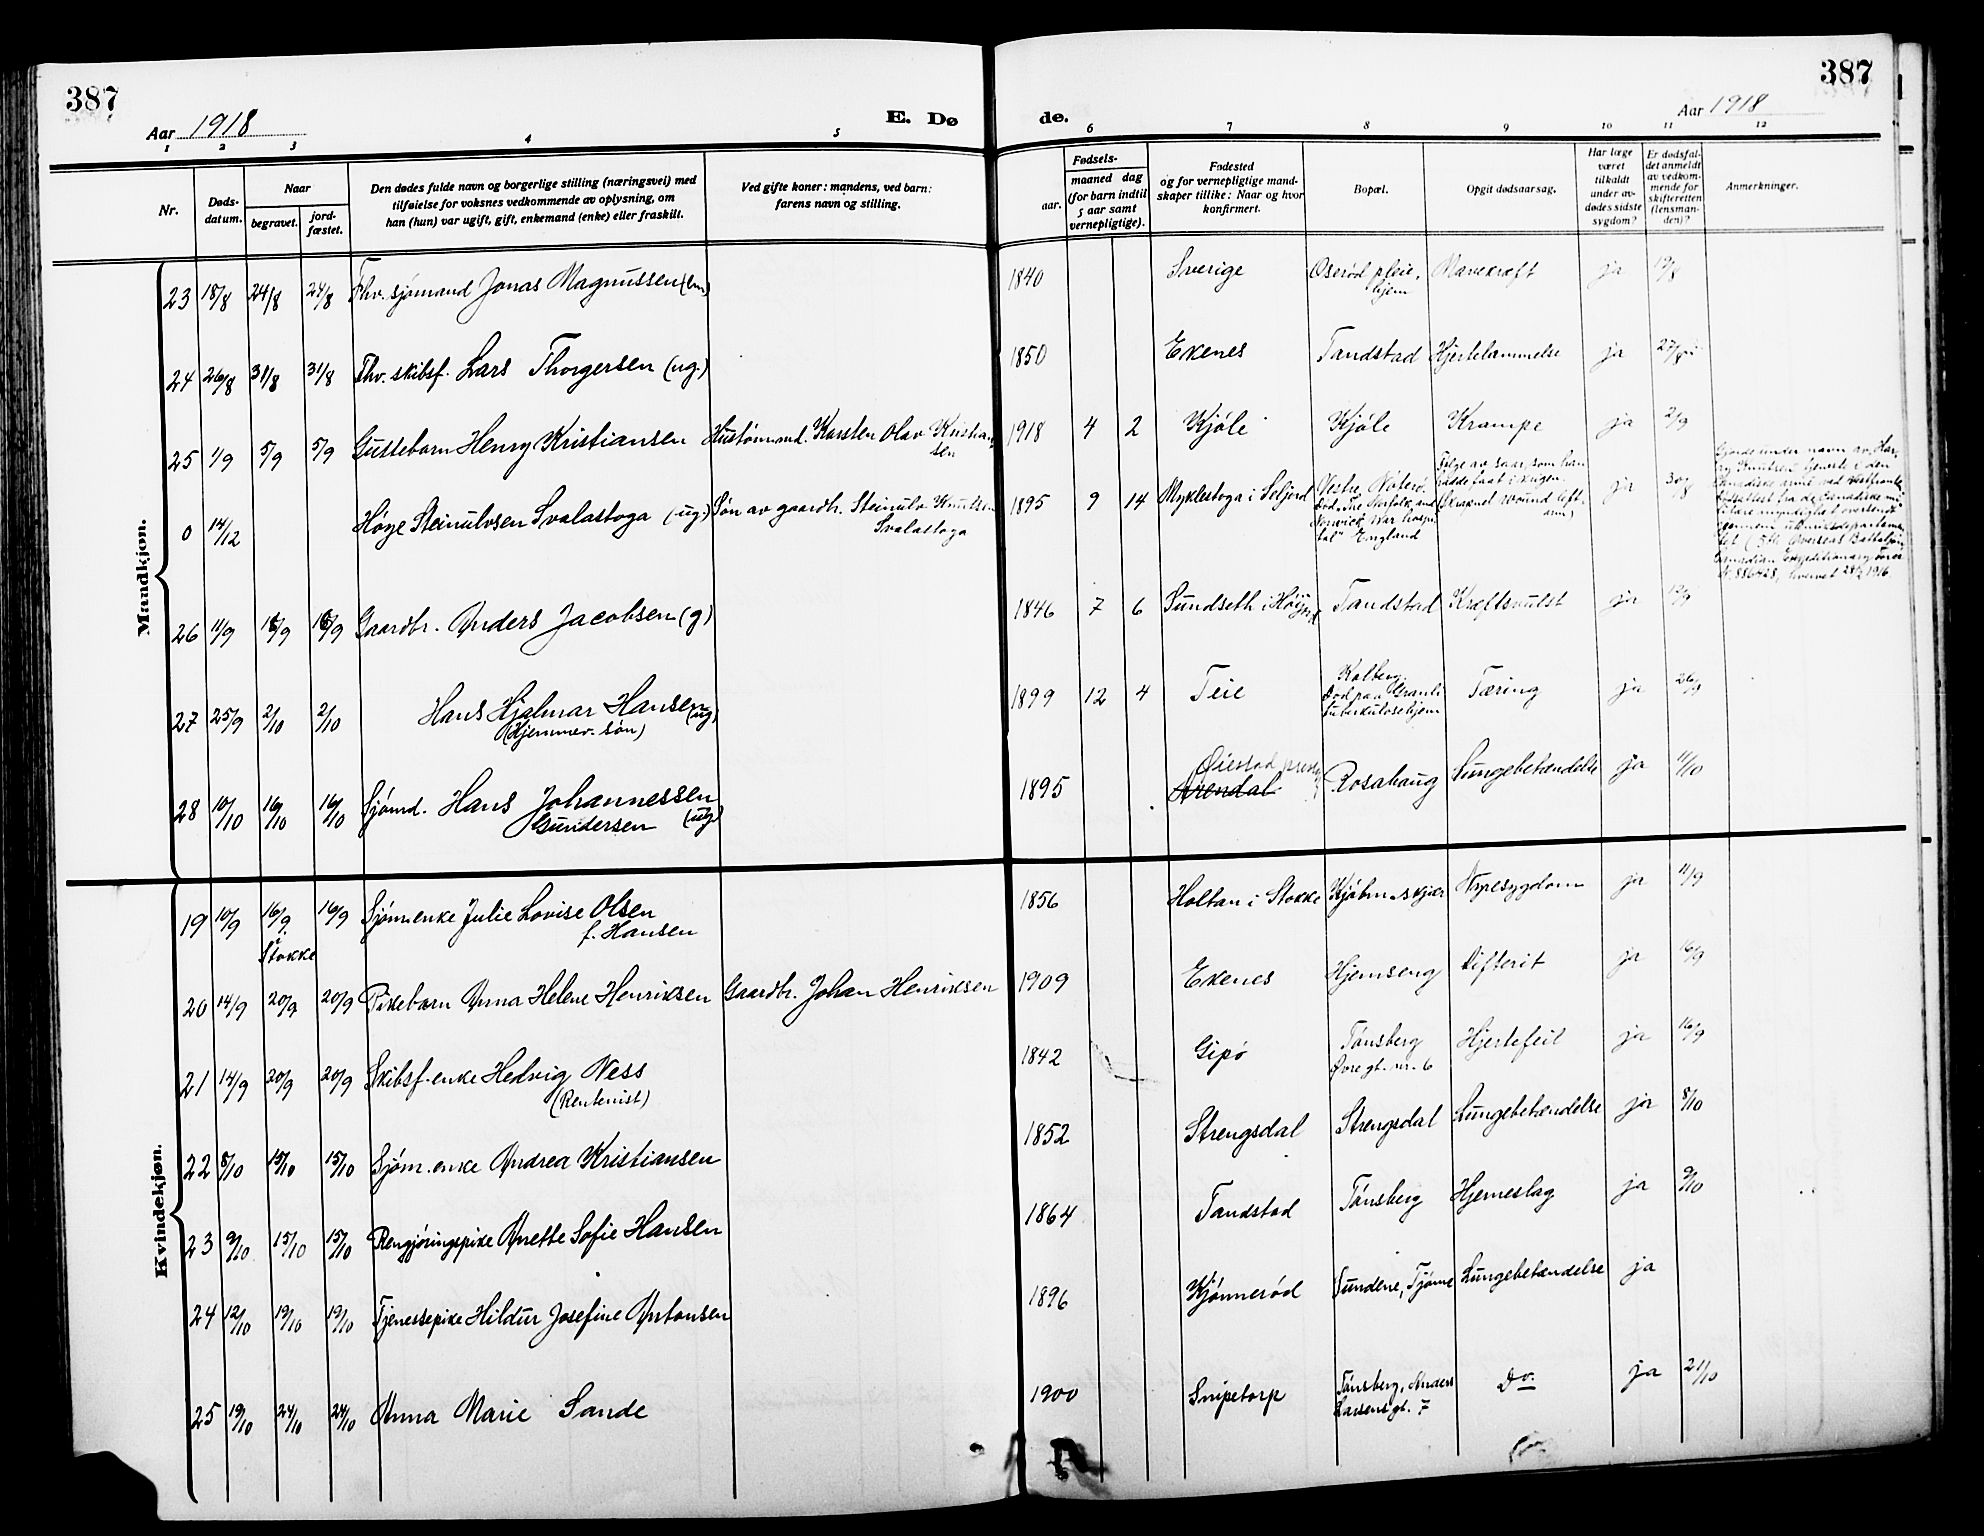 387
Aar 1918
E. Dø
de.
Aar 1918
387
1 2 3 4 5 6 7 8 9 10 11 12
Nr.
Døds-
datum.
Naar
begravet.
jord-
fæstet.
Den dødes fulde navn og borgerlige stilling (næringsvei) med
tilføielse for voksnes vedkommende av oplysning, om
han (hun) var ugift, gift, enkemand (enke) eller fraskilt.
Ved gifte koner: mandens, ved barn:
farens navn og stilling.
Fødsels-
aar.
maaned dag
(for barn indtil
5 aar samt
vernepligtige).
Fødested
og for vernepligtige mand-
skaper tillike: Naar og hvor
konfirmert.
Bopæl.
Opgit dødsaarsag.
Har læge
været
tilkaldt
under av-
dødes sidste
sygdom?
Er dødsfal-
det anmeldt
av vedkom-
mende for
skifteretten
(lensman-
den)?
Anmerkninger.
Mandkjøn.
23 18/8 24/8 24/8 Fhv. sjømand Jonas Magnussen (em) 1840 Sverige Oserød pleie- Mavekræft ja 19/8
hjem
24 26/8 31/8 31/8 Fhv. skibsf. Lars Thorgersen (ug.) 1850 Ekenes Tandstad Hjertelammelse ja 27/8
25 1/9 5/9 5/9 Guttebarn Henry Kristiansen Hustømmmd. Karsten Olav Kristian- 1918 4 2 Kjøle Kjøle Krampe ja 2/9
sen
0 14/12 Høye Steinulvsen Svalastoga (ug.) Søn av gaardbr. Steinulv Knutsen 1895 9 14 Myklestoga i Seljord Vestre Nøterø. Følge av saar, som han ja 30/8
Svalastoga
Død "The Norfolk and
Norwich War hospi-
tal" England
hadde faat i krigen.
(Shrapnel wound left
arm)
Gjorde under navn av Har-
ry Knutsen tjeneste i den
canadiske armé ved vestfronten.
Dødsattest fra de canadiske mi-
litære myndigheter oversendt
gjennem utenriksdepartemen-
tet (5th Overseas Battalion
Canadian Expeditionary Force
Nr. 886428, hvervet 28/2 1916.
26 11/9 18/9 18/9 Gaardbr. Anders Jacobsen (g) 1846 7 6 Sundseth i Høijord Tandstad Kræftsvulst ja 12/9
27 25/9 2/10 2/10 Hans Hjalmar Hansen (ug) 1899 12 4 Teie Kalberg. Tæring ja 26/9
(Hjemmev. søn)
Død paa Granli
tuberkulosehjem
28 10/10 16/10 16/10 Sjømd. Hans Johannessen 1895 Øiestad prestgj. Rosahaug Lungebetændelse ja 11/10
Gundersen (ug)
Arendal
Kvindekjøn.
19 10/9 16/9 16/9 Sjømenke Julie Lovise Olsen 1856 Holtan i Stokke Kjøbmskjær Nyresygdom ja 11/9
i Stokke
f. Hansen
20 14/9 20/9 20/9 Pikebarn Anna Helene Henriksen Gaardbr. Johan Henriksen 1909 Ekenes Hjemseng Difterit ja 16/9
21 14/9 20/9 20/9 Skibsf.enke Hedvig Ness 1842 Gipø Tønsberg Hjertefeil ja 16/9
(Rentenist)
Øvre gt. nr. 6
22 8/10 15/10 15/10 Sjøm.enke Andrea Kristiansen 1852 Strengsdal Strengsdal Lungebetændelse ja 8/10
23 9/10 15/10 15/10 Rengjøringspike Anette Sofie Hansen 1864 Tandstad Tønsberg Hjerneslag ja 9/10
24 12/10 19/10 19/10 Tjenestepike Hildur Josefine Antonsen 1896 Kjønnerød Sundene, Tjøme Lungebetændelse ja
25 19/10 24/10 24/10 Anna Marie Sande 1900 Snipetorp Tønsberg, Anders Do. ja 21/10
Larsens gt. 7